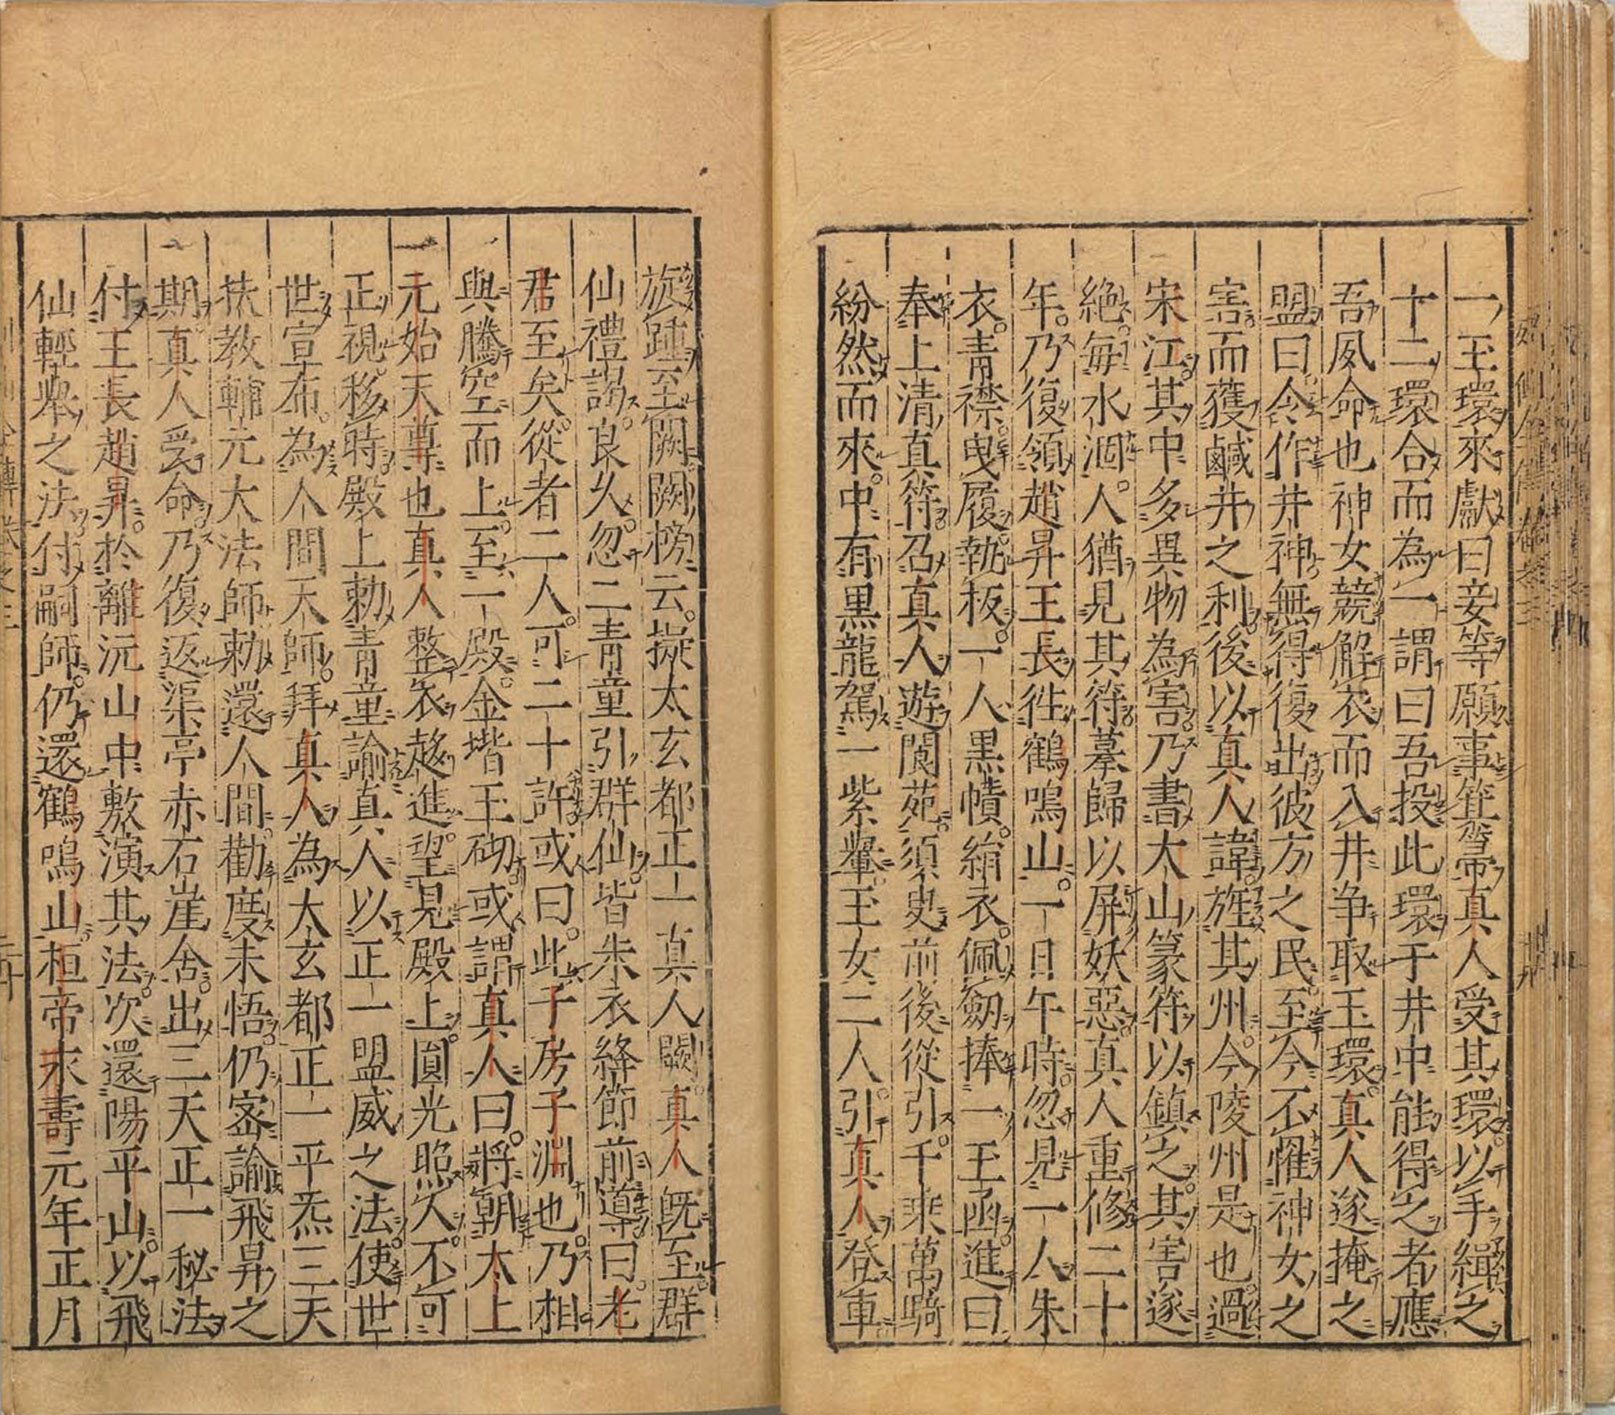 一玉環來獻曰妾等願事箕箒真人受其環以手緝之
十二環合而為一謂曰吾投此環于井中能得之者應
吾夙命也神女競解衣而入井争取玉環真人遂掩之
盟曰令作井神無得復出彼方之民至今不罹神女之
害而獲鹹井之利後以真人諱旌其州今陵州是也過
宋江其中多異物為害乃書大山篆符以鎮之其害遂
絶每水涸人猶見其符摹歸以屏妖惡真人重修二十
年乃復領趙昇王長徃鶴鳴山一日午時忽見一人朱
衣青襟曳履執板一人黒幘絹衣佩劒捧一玉函進曰
奉上清真符召真人遊閬苑須臾前後從引千乘萬騎
紛然而來中有黒龍駕一紫轝玉女二人引真人登車
旋踵至闕闕榜云擬太玄都正一真人闕真人既至群
仙禮謁良久忽二青童引群仙皆朱衣絳節前導曰老
君至矣從者二人可二十許或曰此子房子淵也乃相
與騰空而上至一殿金堦玉砌或謂真人曰將朝太上
元始天尊也真人整衣趍進望見殿上圓光照人不可
正視移時殿上勅青童諭真人以正一盟威之法使世
世宣布為人間天師拜真人為太玄都正一平炁三天
扶教輔元大法師勅還人間勸度未悟仍宻諭飛昇之
期真人受命乃復返渠亭赤石崖舍出三天正一秘法
付王長趙昇於離沅山中敷演其法次還陽平山以飛
仙輕舉之法付嗣師仍還鶴鳴山桓帝永壽元年正月